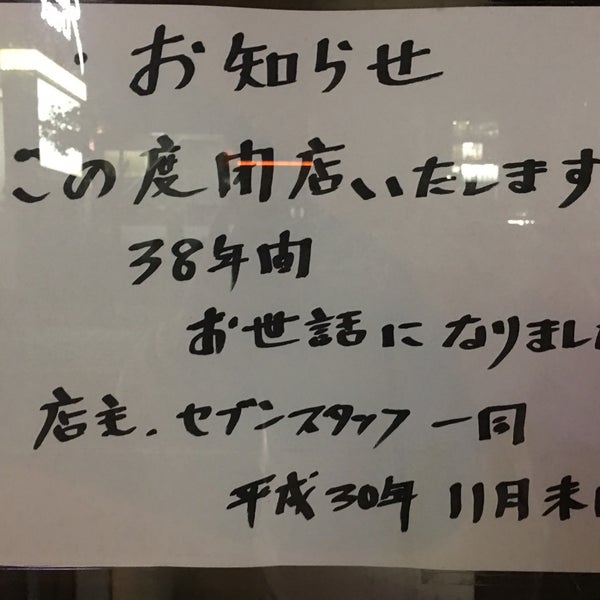 お知らせ
この度閉店いたします
38年間
お世話になりまし
店主、セブンスタッフ一同
平成30年 11月末